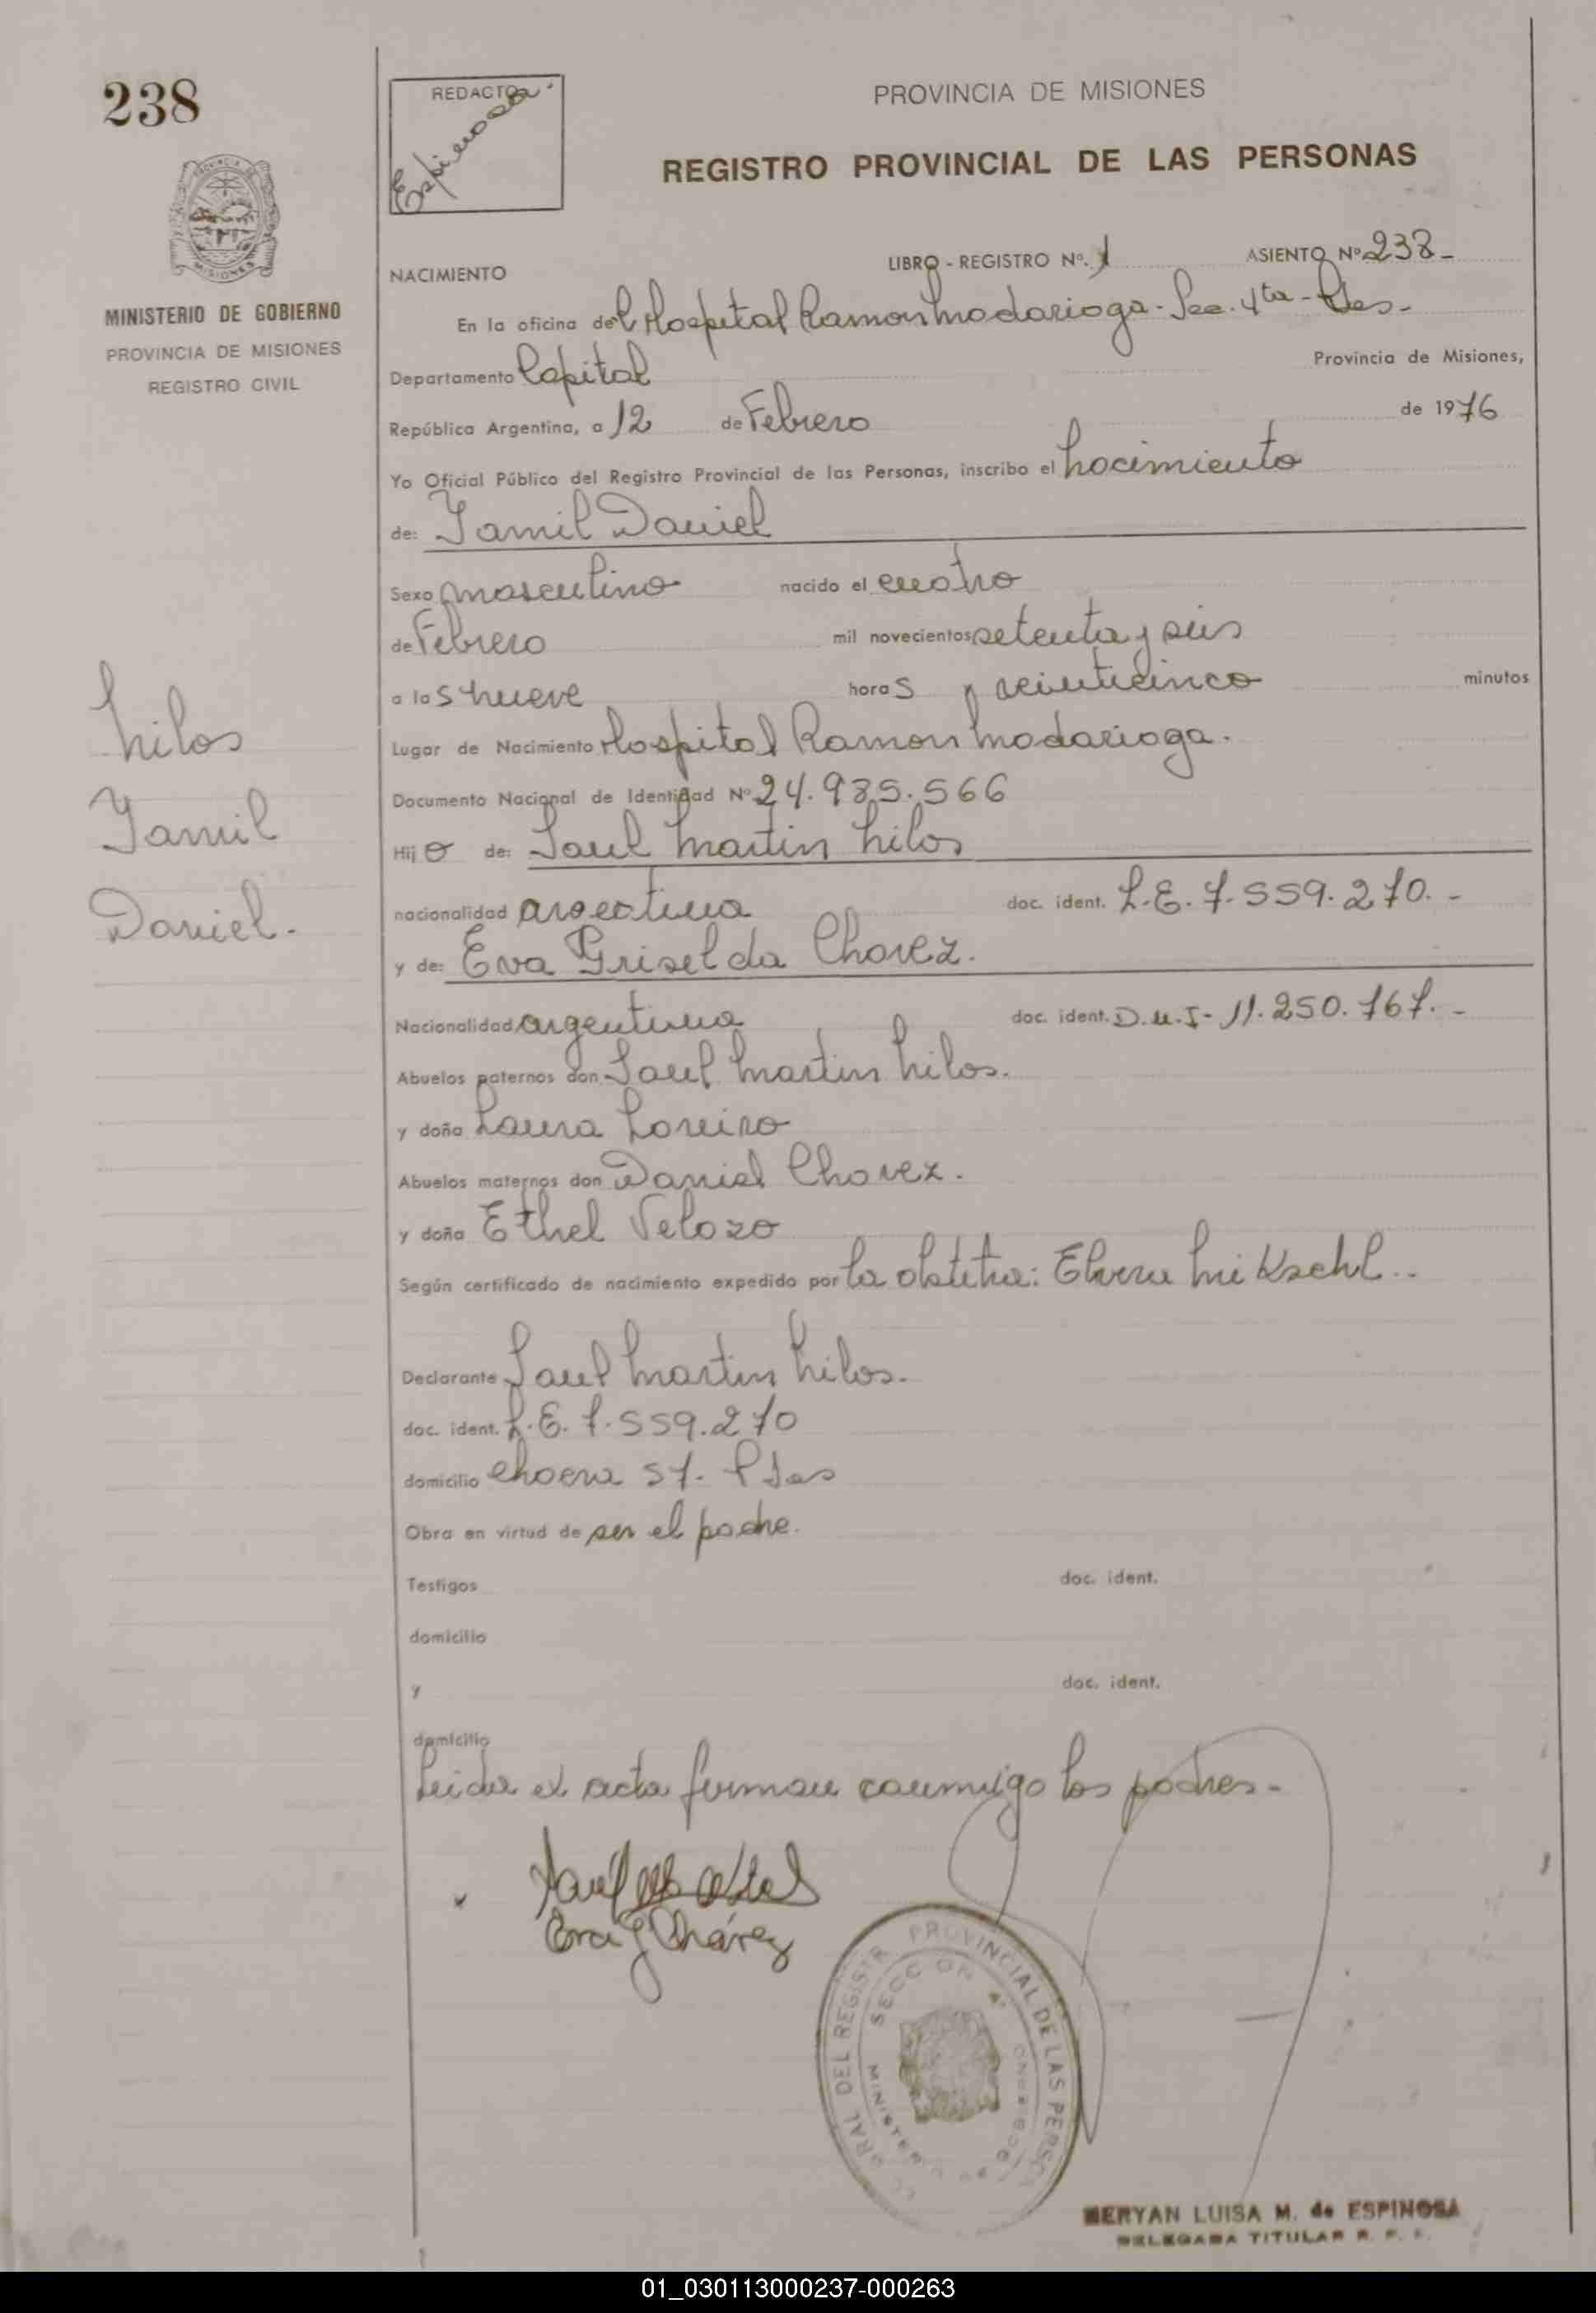 238
REDACTOR
Espinosa
PROVINCIA DE MISIONES
REGISTRO PROVINCIAL DE LAS PERSONAS
MISIONES
MINISTERIO DE GOBIERNO
PROVINCIA DE MISIONES
REGISTRO CIVIL
NACIMIENTO
LIBRO - REGISTRO Nº. 1 ASIENTO Nº 238-
En la oficina del Hospital Ramon Madariaga - Sec. 4ta - Pdas-
Departamento Capital Provincia de Misiones,
República Argentina, a 12 de Febrero de 1976
Yo Oficial Público del Registro Provincial de las Personas, inscribo el nacimiento
de: Yamil Daniel
Sexo masculino nacido el cuatro
de Febrero mil novecientos setenta y seis
a las nueve horas y veinticinco minutos
Lugar de Nacimiento Hospital Ramon Madariaga.
Documento Nacional de Identidad Nº 24.985.566
Hijo de: Saul Martin Milos
nacionalidad argentina doc. ident. L.E. 7.559.270.-
y de: Eva Griselda Chavez.
Nacionalidad argentina doc. ident. D.N.I- 11.250.767.-
Abuelos paternos don Saul Martin Milos.
y doña Laura
Abuelos maternos don Daniel Chavez.
y doña Ethel Velozo
Según certificado de nacimiento expedido por la obstetra: Elvera
Declarante Saul Martin Milos.
doc. ident. L.E. 7.559.270
domicilio 57- Pdas
Obra en virtud de ser el padre.
Testigos doc. ident.
domicilio
y doc. ident.
domicilio
Leida el acta firman conmigo los padres-
Eva G Chávez
Milos
Yamil
Daniel.
PROVINCIAL DE LAS
DEL REGISTR
MERYAN LUISA M. de ESPINOSA
DELEGADA TITULAR R. P. P.
01_030113000237-000263